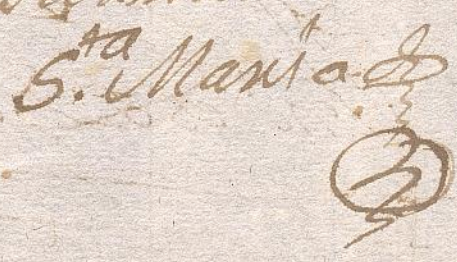 S.ta Maria